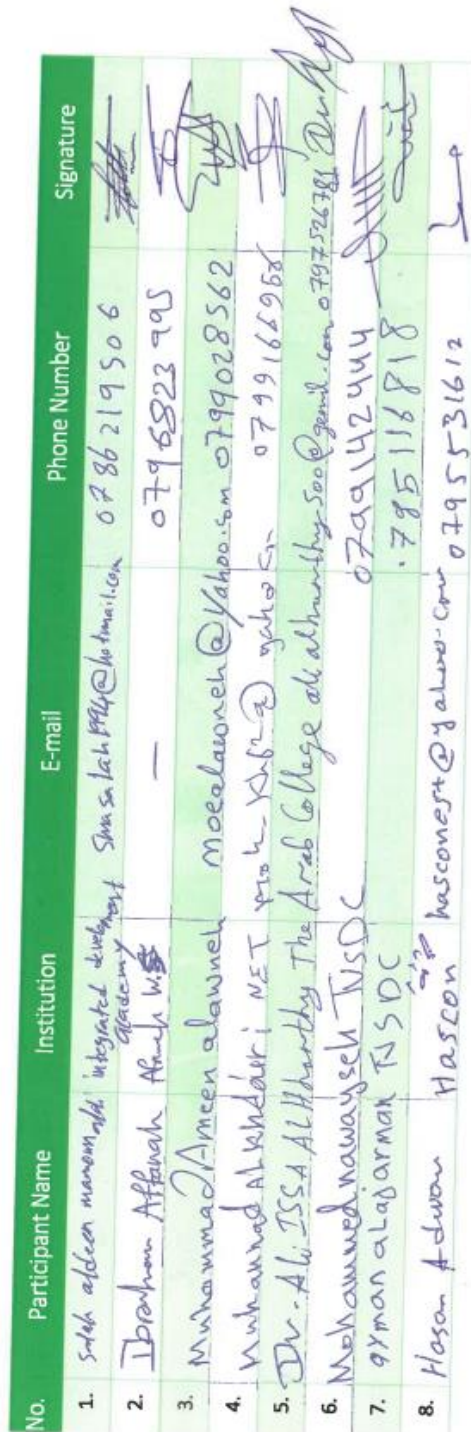 No. Participant Name Institution E-mail Phone Number Signature
1. Salah aldeen mamoun integrated development academy 0786219506
2. Ibrahim Affanah — 0796823995
3. Muhammad Ameen alawneh moealawneh@yahoo.com 0799028562
4. Muhannad Alkhdairi NET 0799166968
5. Dr. Ali ISSA ALHharthy The Arab College 0797526788
6. Mohammed nawayseh TVSDC 0799142444
7. ayman alajarmah TVSDC .795116818
8. Hasan Adwan Hascon hasconest@yahoo.com 0795531612